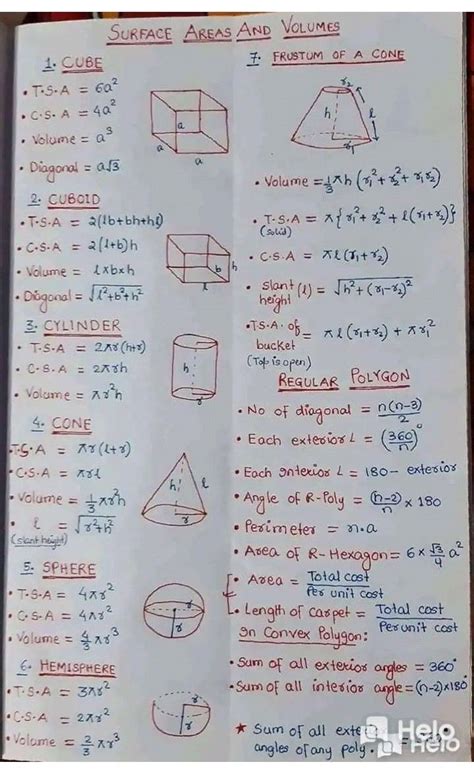 SURFACE AREAS AND VOLUMES
1. CUBE
• T.S.A = 6a²
• C.S.A = 4a²
• Volume = a³
• Diagonal = a√3
a
a
a
2. CUBOID
• T.S.A = 2(lb+bh+hl)
• C.S.A = 2(l+b)h
• Volume = l×b×h
• Diagonal = √l²+b²+h²
b
h
l
3. CYLINDER
• T.S.A = 2πr(h+r)
• C.S.A = 2πrh
• Volume = πr²h
h
r
4. CONE
• T.S.A = πr(l+r)
• C.S.A = πrl
• Volume = 1/3 πr²h
• l = √r²+h²
(slant height)
h
l
r
5. SPHERE
• T.S.A = 4πr²
• C.S.A = 4πr²
• Volume = 4/3 πr³
r
r
6. HEMISPHERE
• T.S.A = 3πr²
• C.S.A = 2πr²
• Volume = 2/3 πr³
r
7. FRUSTUM OF A CONE
r₂
h
l
r₁
• Volume = 1/3 πh (r₁²+r₂²+r₁r₂)
• T.S.A = π{r₁²+r₂²+l(r₁+r₂)}
(solid)
• C.S.A = πl(r₁+r₂)
• slant height (l) = √h²+(r₁-r₂)²
• TSA of bucket = πl(r₁+r₂) + πr₁²
(Top is open)
REGULAR POLYGON
• No of diagonal = n(n-3)/2
• Each exterior ∠ = (360/n)°
• Each Interior ∠ = 180 - exterior
• Angle of R-Poly = (n-2)/n × 180
• Perimeter = n·a
• Area of R-Hexagon = 6 × √3/4 a²
• Area = Total cost/Per unit cost
• Length of carpet = Total cost/Per unit cost
In Convex Polygon:
• Sum of all exterior angles = 360°
• Sum of all interior angle = (n-2)×180°
★ Sum of all
angles of any poly.
Helo
Helo